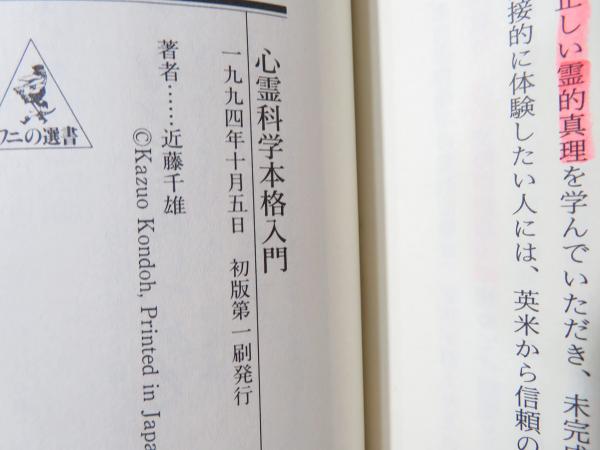 正しい霊的真理を学んでいただき、未完成
接的に体験したい人には、英米から信頼の
心霊科学本格入門
一九九四年十月五日 初版第一刷発行
著者……近藤千雄
©Kazuo Kondoh, Printed in Japa
ワニの選書